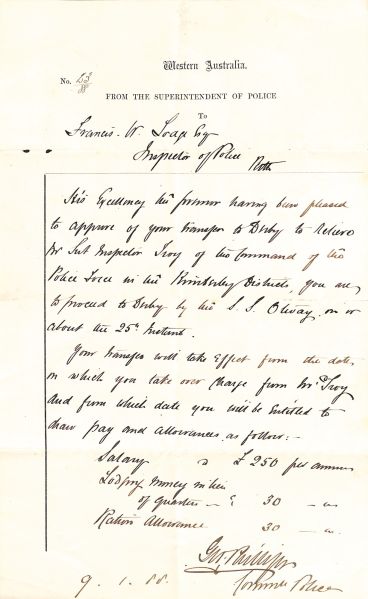 Western Australia.
No. 23/88
FROM THE SUPERINTENDENT OF POLICE
To
Francis. W. Loage Esq
Inspector of Police
Perth
His Excellency the Governor having been pleased
to approve of your transfer to Derby to relieve
Mr Sub Inspector Troy of the Command of the
Police Force in the Kimberley District, you are
to proceed to Derby by the S. S. Otway on or
about the 25th Instant.
Your transfer will take effect from the date
on which you take over Charge from Mr Troy
and from which date you will be Entitled to
draw pay and allowances, as follow:-
Salary £ 250 per annum
Lodging money in lieu
of quarters - 30 -
Ration Allowance 30 -
Geo Phillips
Police
9. 1. 88.